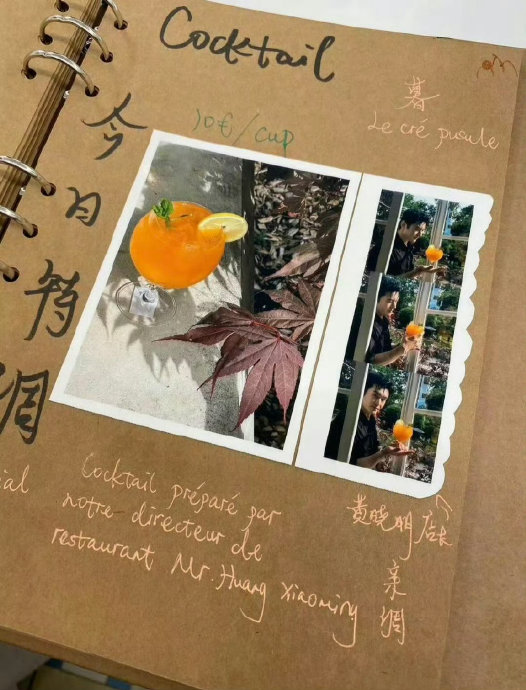 Cocktail
暮
Le cré pusule
10€/cup
今日特调
Cocktail préparé par
notre directeur de
restaurant Mr. Huang Xiaoming
黄晓明店长
亲调